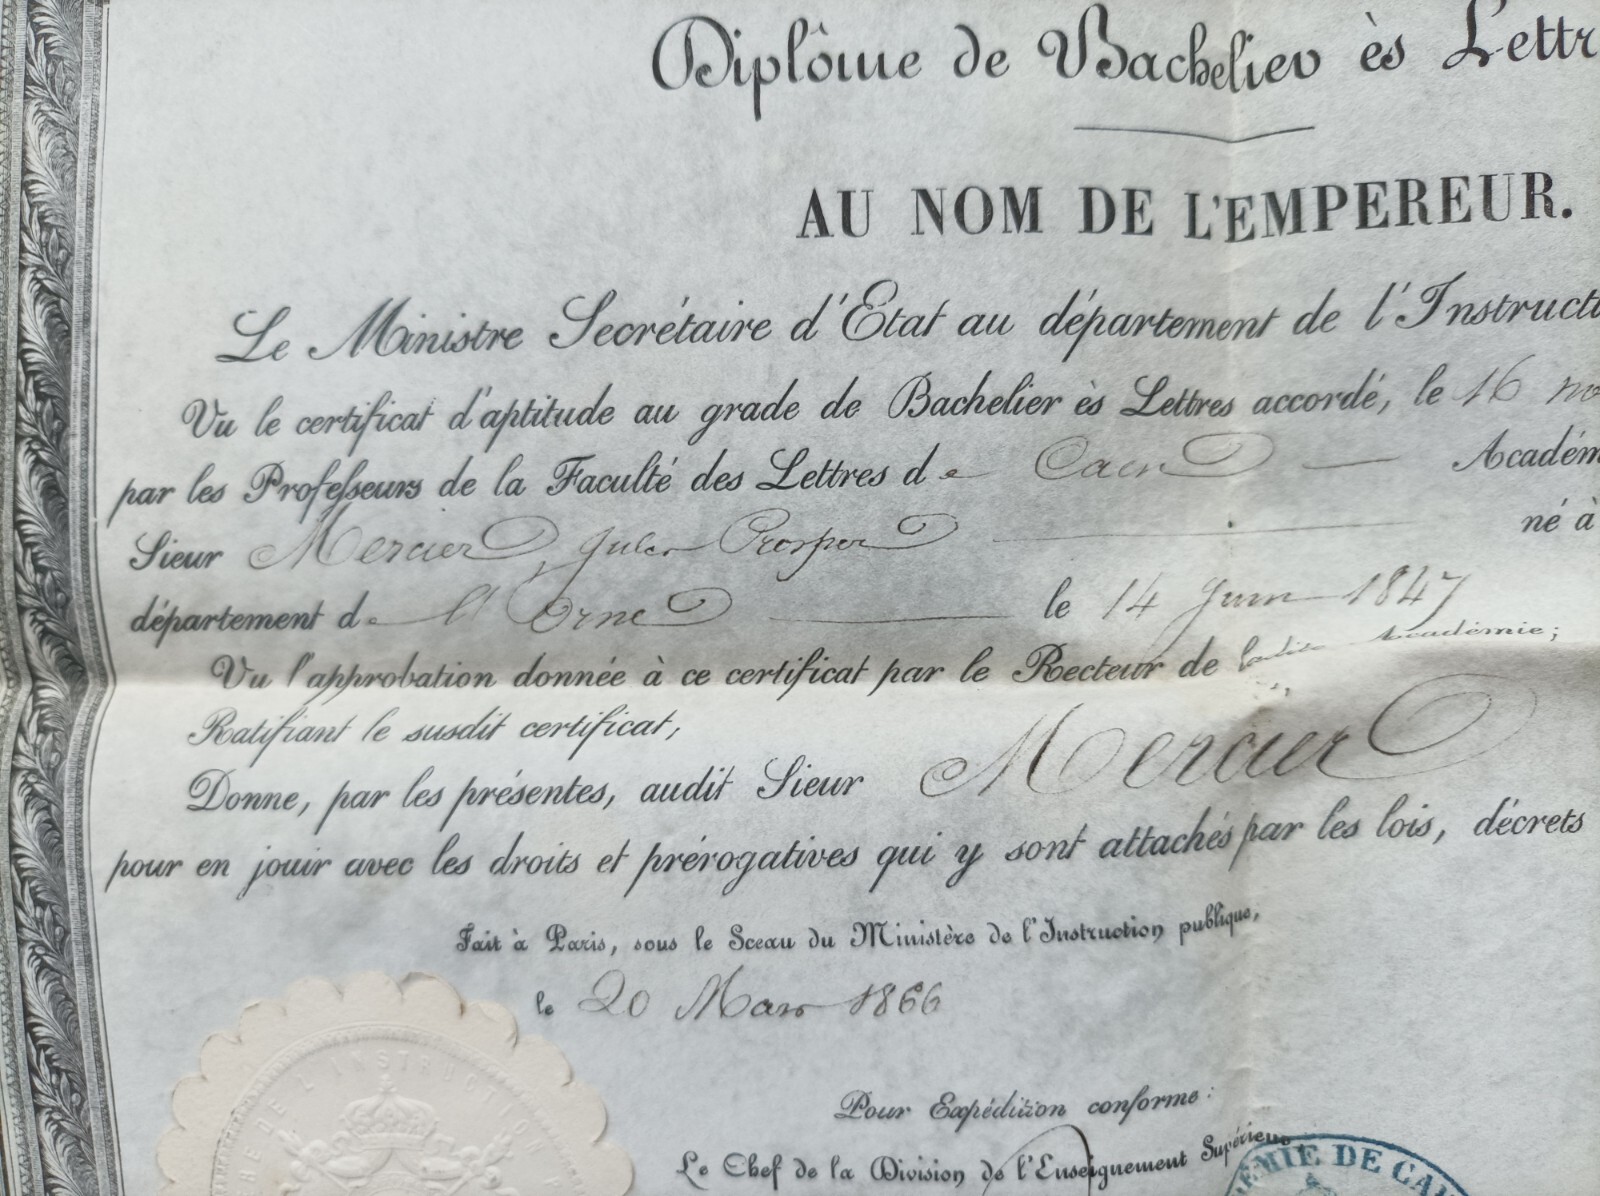 Diplôme de Bachelier ès Lettr
AU NOM DE L'EMPEREUR.
Le Ministre Secrétaire d'Etat au département de l'Instructi
Vu le certificat d'aptitude au grade de Bachelier ès Lettres accordé, le 16 no
par les Professeurs de la Faculté des Lettres de Caen Académ
Sieur Mercier, Jules Prosper né à
département de l'Orne le 14 Juin 1847
Vu l'approbation donnée à ce certificat par le Recteur de ladite Académie;
Ratifiant le susdit certificat,
Donne, par les présentes, audit Sieur Mercier
pour en jouir avec les droits et prérogatives qui y sont attachés par les lois, décrets
Fait à Paris, sous le Sceau du Ministère de l'Instruction publique,
le 20 Mars 1866
Pour Expédition conforme:
Le Chef de la Division de l'Enseignement Supérieur
RE DE L'INSTRUCTIO
ÉMIE DE CA